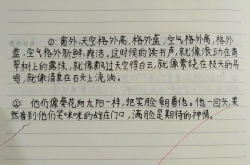 ① 窗外,天空格外高,格外蓝,空气格外高,格外
蓝,空气格外新鲜,爽洁。这时候的读书声,就像滚动在青
翠树上的露珠,就像飘过天空得白云,就像萦绕在枝头的鸟
鸣,就像清泉在石头上流淌。
② 他们像葵花向太阳一样,把笑脸朝着他。他一回头,果
然看到他们笑咪咪的站在门口,满脸是期待的神情。